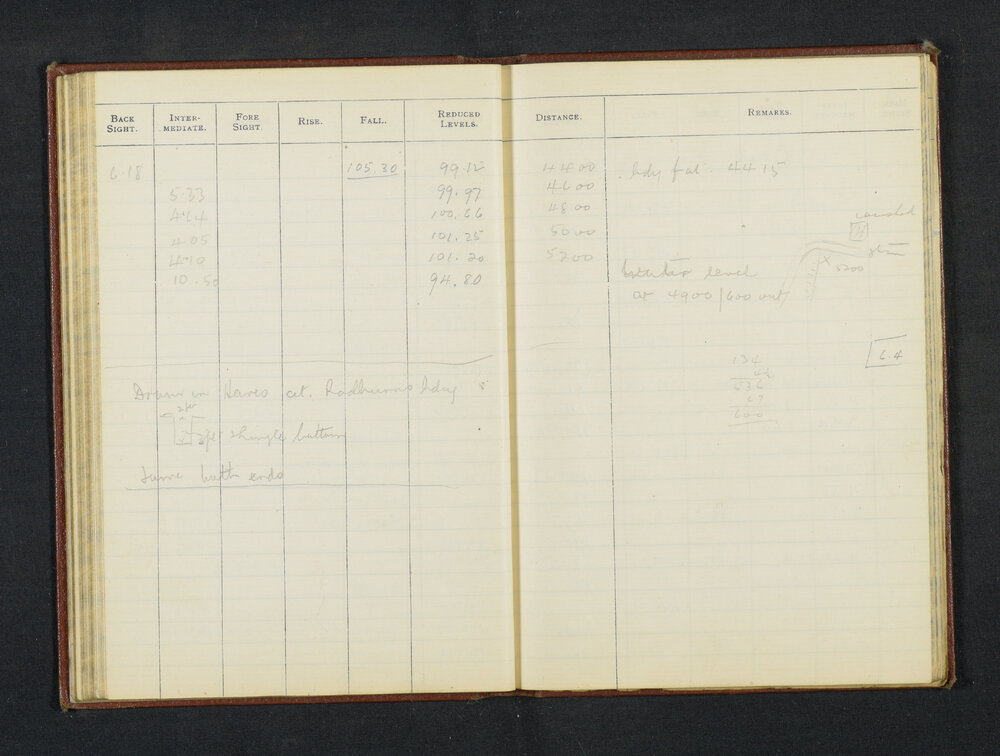 BACK SIGHT. INTER-MEDIATE. FORE SIGHT. RISE. FALL. REDUCED LEVELS. DISTANCE. REMARKS.
6.18 105.30 99.12 4400 bdy fal. 4415
5.33 99.97 4600
4.64 100.66 4800
4.05 101.25 5000
4.10 101.20 5200
10.50 94.80
5200
Water level
at 4900/600 out
6.4
134
636
67
600
Drain in at. Radburns bdy
2ft
2ft shingle bottom
Same both ends